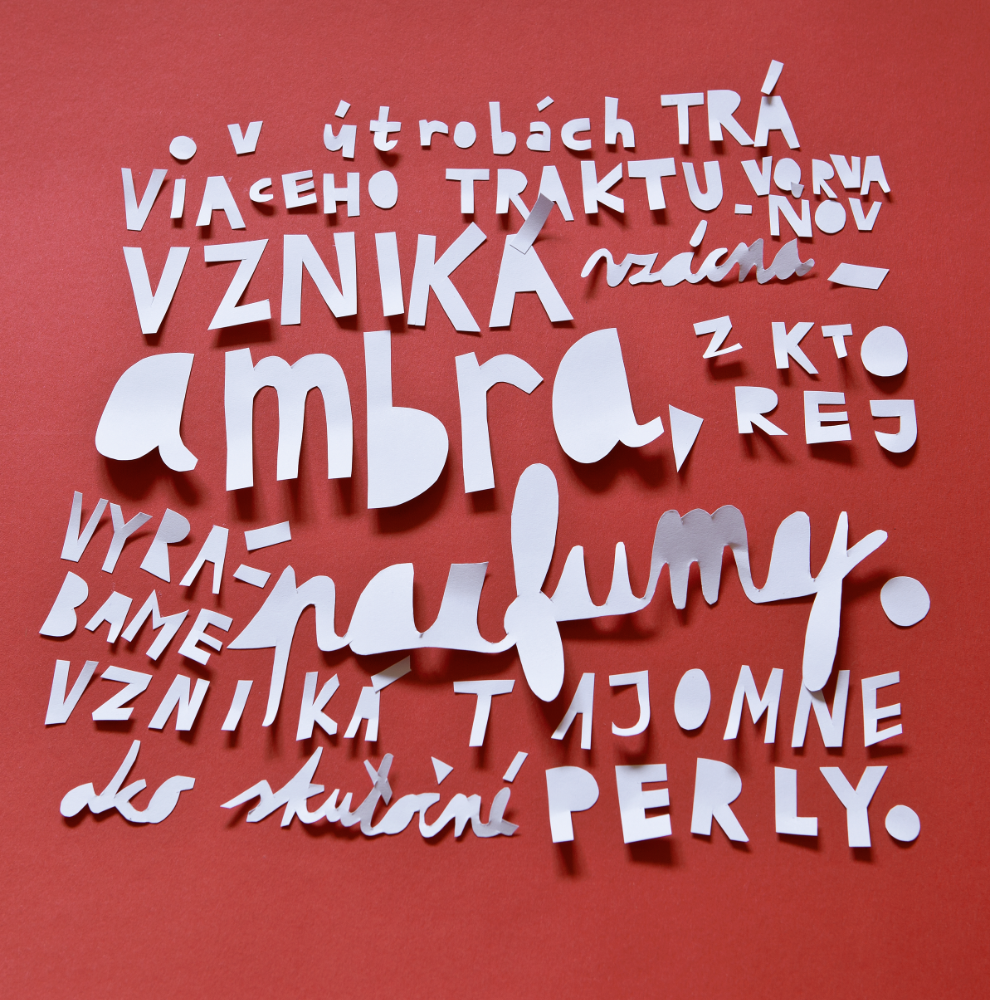 • v útrobách TRÁ
VIACEHO TRAKTU VORVA-
ŇOV
VZNIKÁ vzácna –
ambra,
Z KTO
REJ
VYRÁ-
BAME parfumy.
VZNIKÁ TAJOMNE
ako skutočné PERLY.